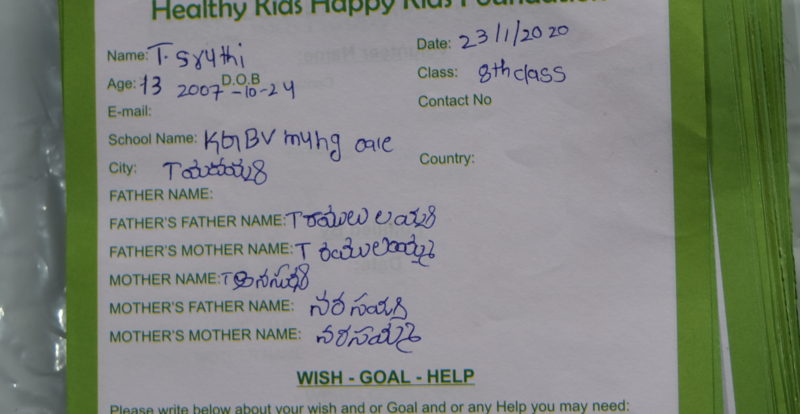 Healthy Kids Happy Kids Foundation
Name: T. Sruthi Date: 23/1/2020
Age: 13 D.O.B 2007-10-24 Class: 8th class
E-mail: Contact No
School Name: KGBV
City: Country:
FATHER NAME:
FATHER'S FATHER NAME: T రాములు
FATHER'S MOTHER NAME: T
MOTHER NAME: T
MOTHER'S FATHER NAME: నర సయ్య
MOTHER'S MOTHER NAME: నరసమ్మ
WISH - GOAL - HELP
Please write below about your wish and or Goal and or any Help you may need: